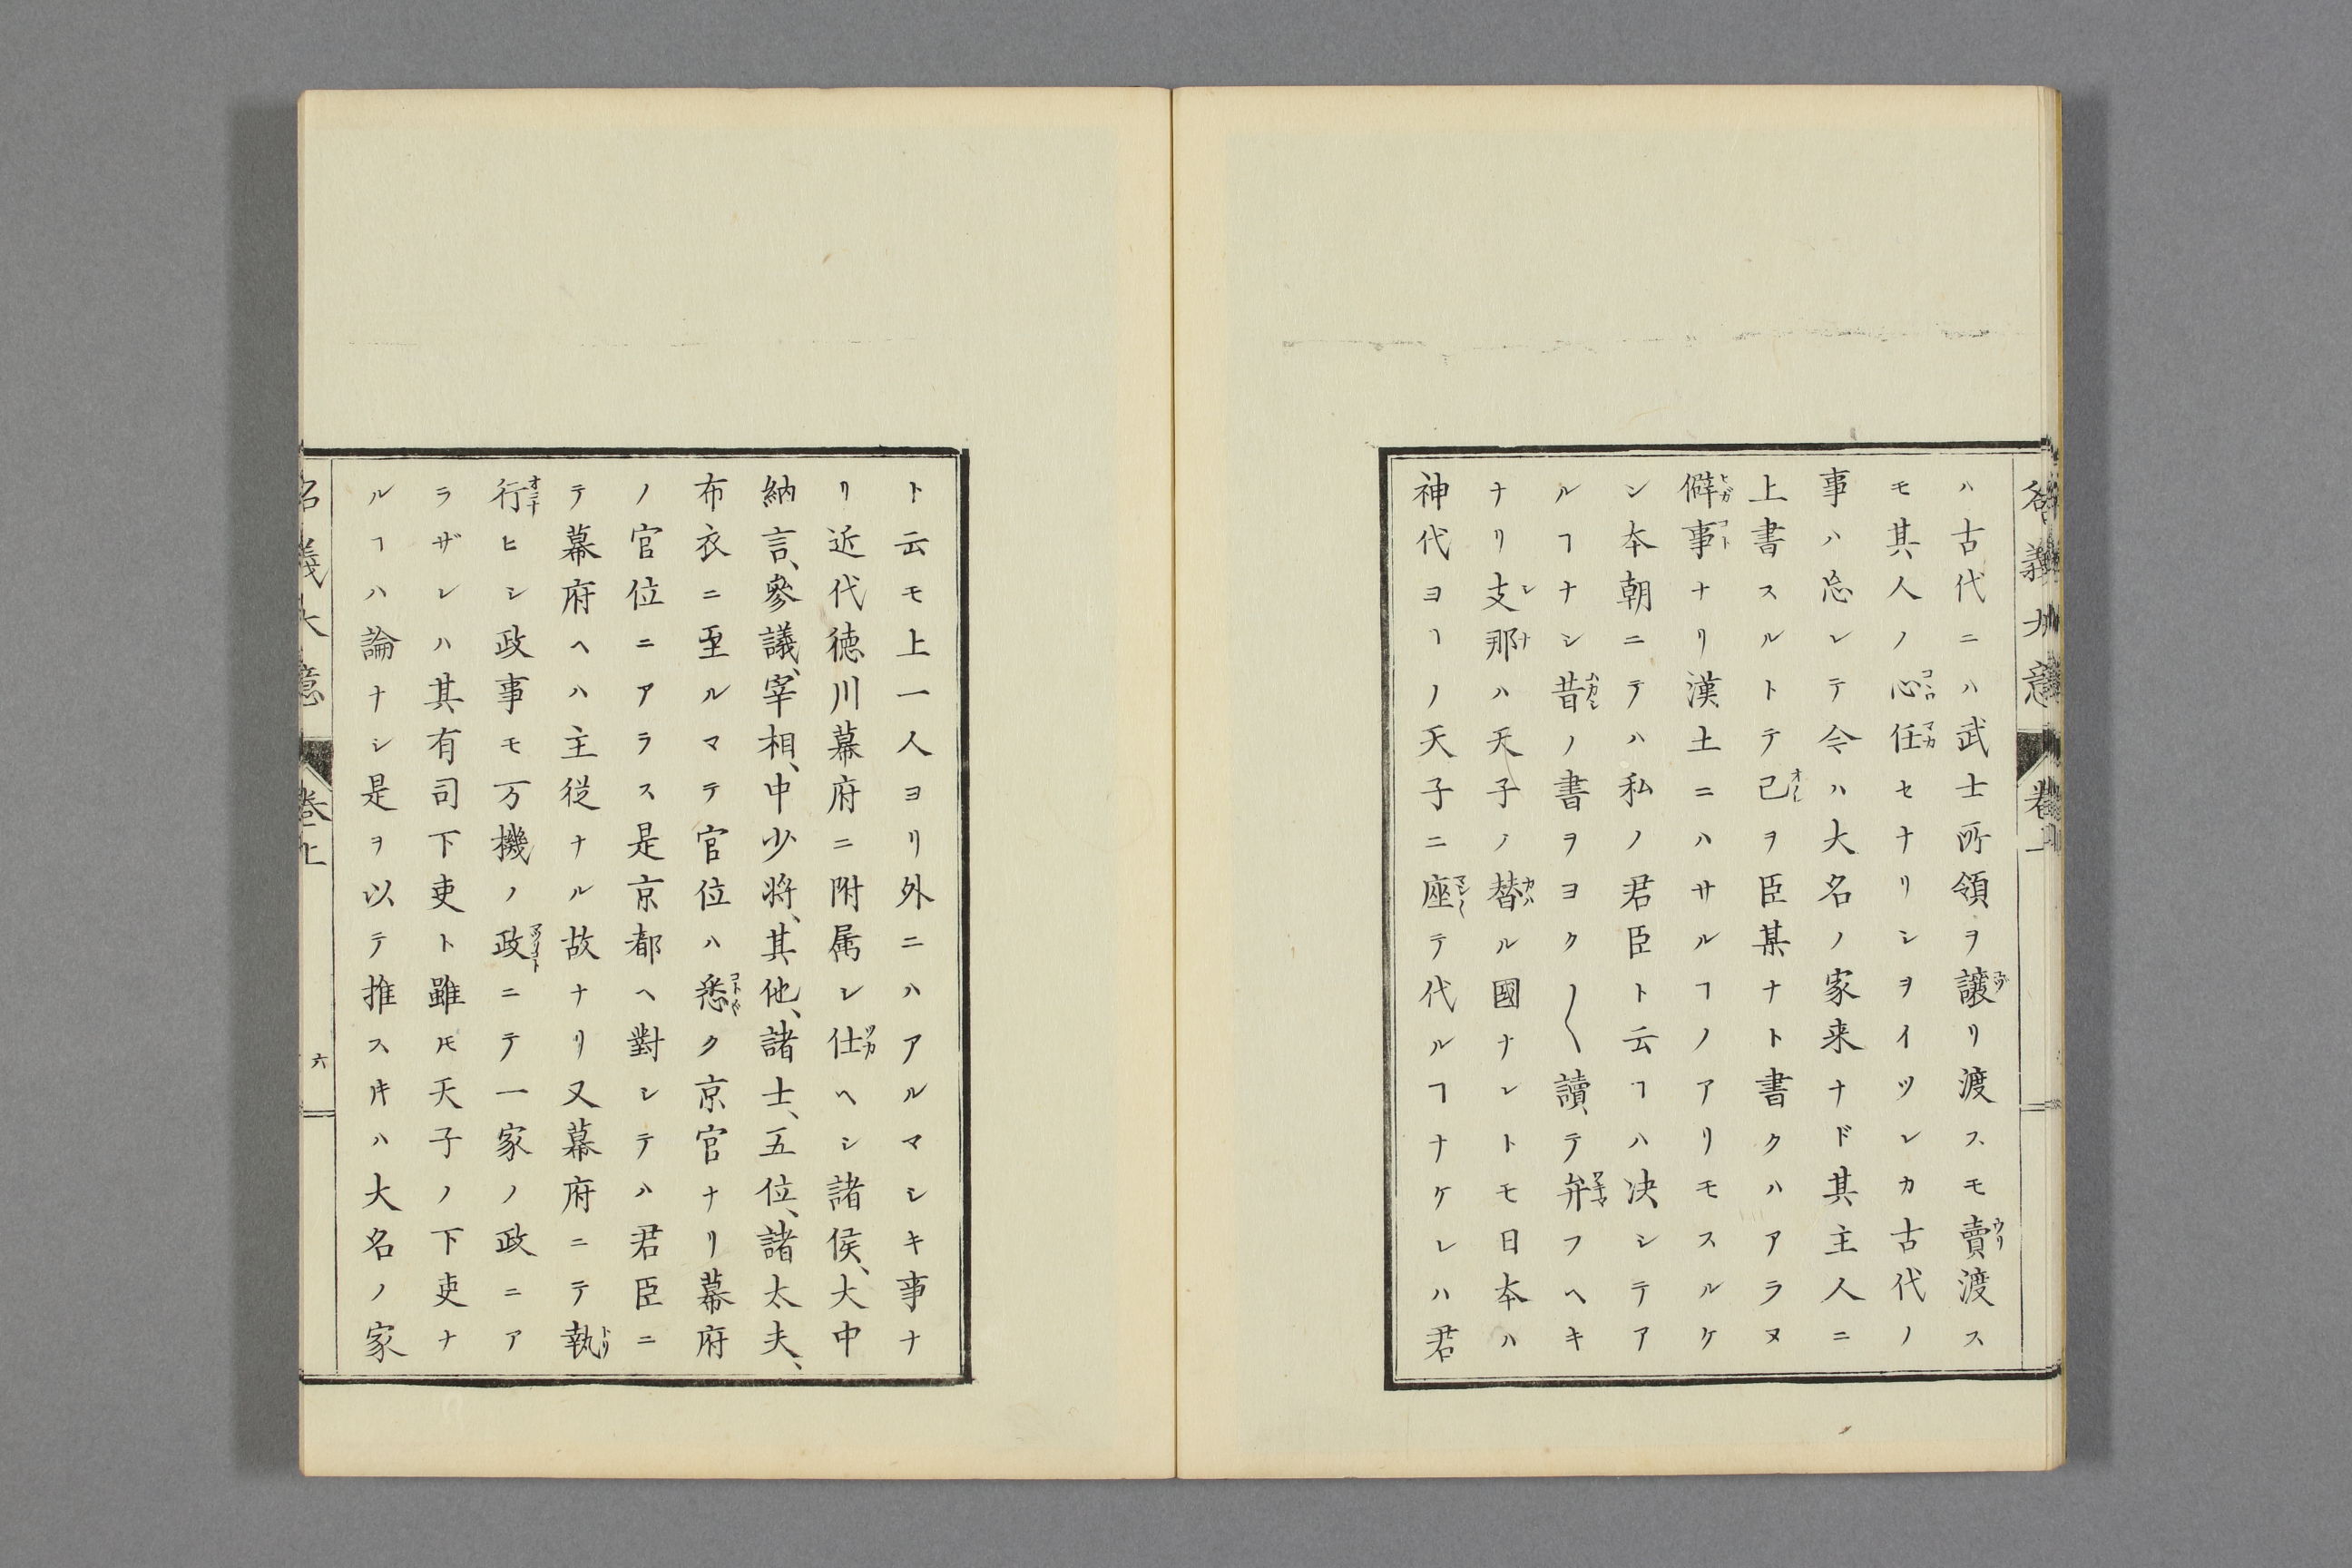 ハ古代ニハ武士所領ヲ讓リ渡スモ賣渡ス
モ其人ノ心任セナリシヲイツレカ古代ノ
事ハ忘レテ今ハ大名ノ家来ナド其主人ニ
上書スルトテ己ヲ臣某ナト書クハアラヌ
僻事ナリ漢土ニハサルヿノアリモスルケ
ン本朝ニテハ私ノ君臣ト云ヿハ决シテア
ルヿナシ昔ノ書ヲヨク〱讀テ弁フヘキ
ナリ支那ハ天子ノ替ル國ナレトモ日本ハ
神代ヨヿノ天子ニ座テ代ルヿナケレハ君
ト云モ上一人ヨリ外ニハアルマシキ事ナ
リ近代徳川幕府ニ附属レ仕ヘシ諸侯、大中
納言、參議、宰相、中少将、其他、諸士、五位、諸太夫、
布衣ニ至ルマテ官位ハ悉ク京官ナリ幕府
ノ官位ニアラス是京都ヘ對シテハ君臣ニ
テ幕府ヘハ主従ナル故ナリ又幕府ニテ執
行ヒシ政事モ万機ノ政ニテ一家ノ政ニア
ラザレハ其有司下吏ト雖𪜈天子ノ下吏ナ
ルヿハ論ナシ是ヲ以テ推スｷハ大名ノ家
名義大意
卷上
六